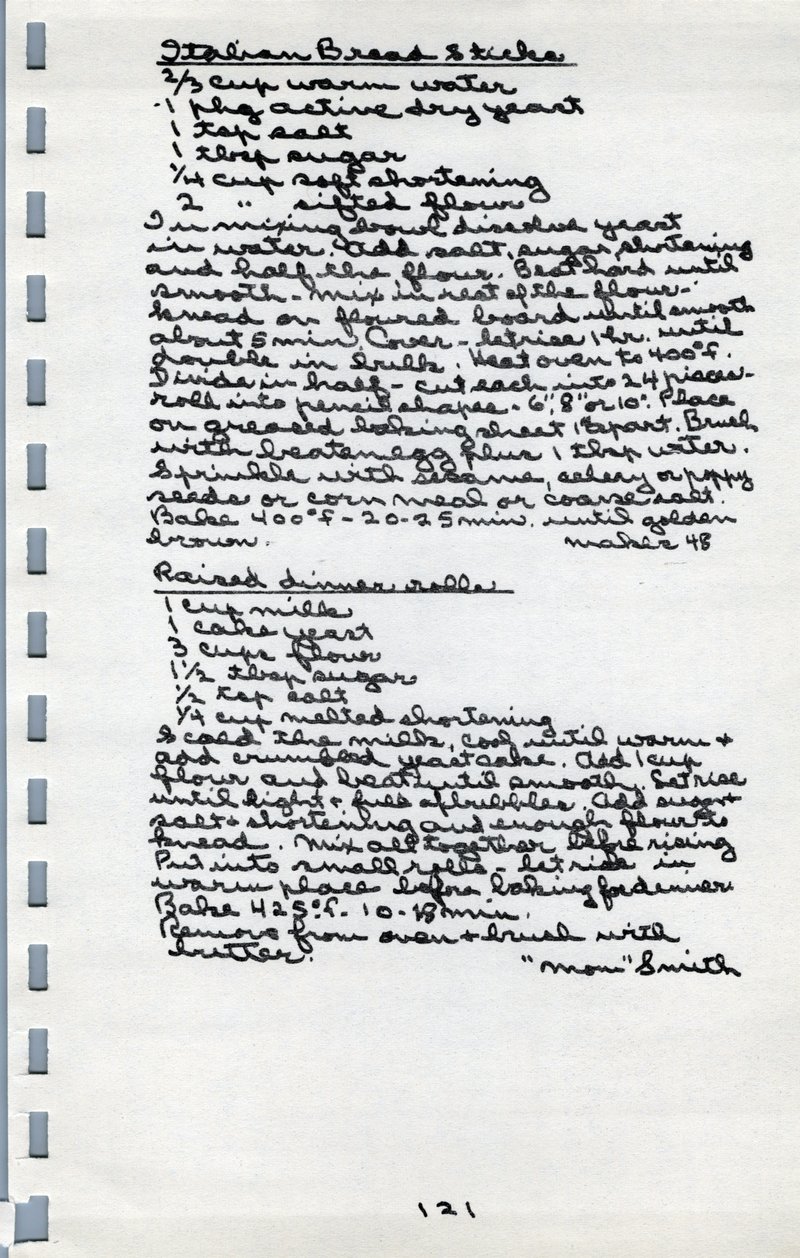 Italian Bread Sticks
2/3 cup warm water
1 pkg active dry yeast
1 tsp salt
1 tbsp sugar
1/4 cup soft shortening
2 " sifted flour
In mixing bowl dissolve yeast
in water. Add salt, sugar, shortening
and half the flour. Beat hard until
smooth - mix in rest of the flour -
knead on floured board until smooth
about 5 min. Cover - let rise 1 hr. until
double in bulk. Heat oven to 400°f.
Divide in half - cut each into 24 pieces -
roll into pencil shapes - 6", 8" or 10". Place
on greased baking sheet 1" apart. Brush
with beaten egg plus 1 tbsp water.
Sprinkle with sesame, celery or poppy
seeds or corn meal or coarse salt.
Bake 400°f - 20-25 min. until golden
brown. makes 48
Raised dinner rolls
1 cup milk
1 cake yeast
3 cups flour
1 1/2 tbsp sugar
1/2 tsp salt
1/4 cup melted shortening
Scald the milk, cool until warm +
add crumbled yeast cake. Add 1 cup
flour and beat until smooth. Let rise
until light + full of bubbles. Add sugar +
salt + shortening and enough flour to
knead. Mix all together before rising
Put into small rolls - let rise in
warm place before baking for dinner.
Bake 425°f - 10-18 min.
Remove from oven + brush with
butter. "Mom" Smith
121